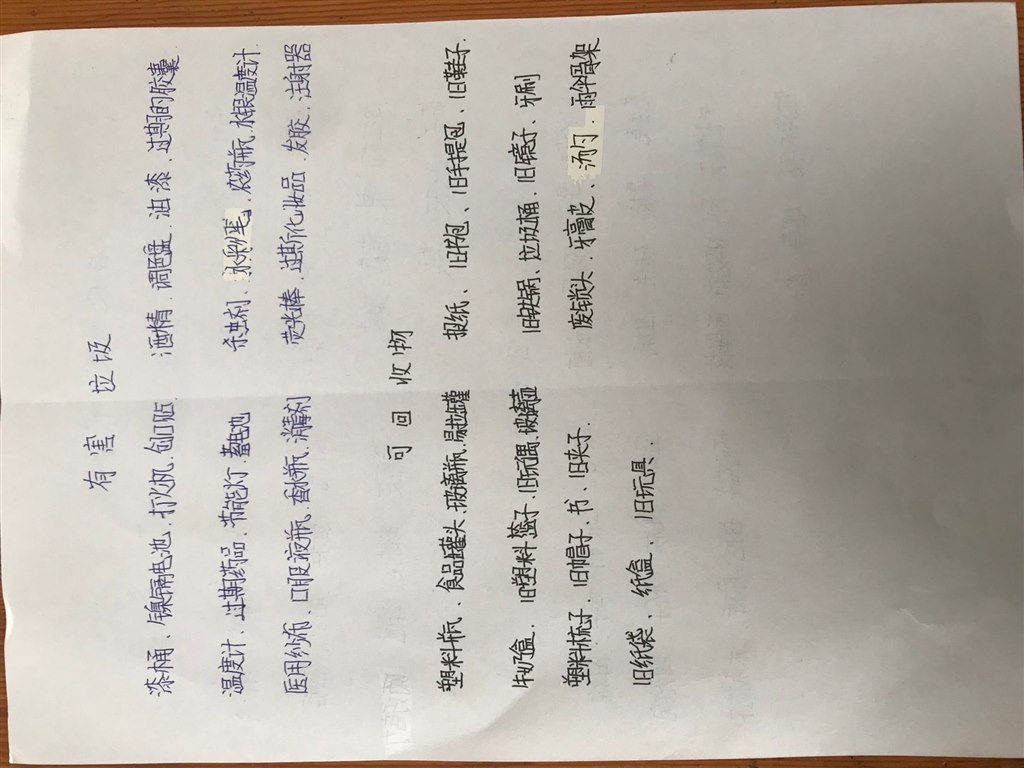 有害 垃圾
漆桶、镍镉电池、打火机、创口贴 酒精、调色盘、油漆、过期的胶囊
温度计、过期药品、节能灯、蓄电池 杀虫剂、水彩笔、农药瓶、水银温度计
医用纱布、口服液瓶、香水瓶、消毒剂 荧光棒、过期化妆品、发胶、注射器
可 回 收 物
塑料瓶、食品罐头、玻璃瓶、易拉罐 报纸、旧书包、旧手提包、旧鞋子
牛奶盒、旧塑料篮子、旧玩偶、玻璃壶 旧铁锅、垃圾桶、旧镜子、牙刷
塑料梳子、旧帽子、书、旧夹子 废锁头、牙膏皮、汤勺、雨伞骨架
旧纸袋、纸盒、旧玩具